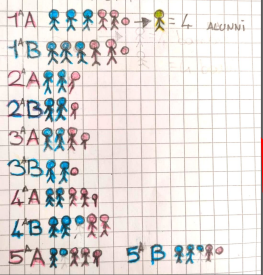 1ᴬA = 4 ALUNNI
1ᴬB
2ᴬA
2ᴬB
3ᴬA
3ᴬB
4ᴬA
4ᴬB
5ᴬA 5ᴬB